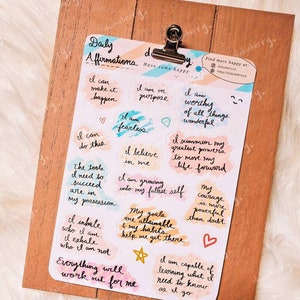 Daily
Affirmations.
Have some happy
Find more happy at:
I can
make it
happen.
I am in
purpose.
I am
worthy
of all
things
wonderful
I can
do this.
I am
fearless
I summon my
greatest powers
to meet my
life forward.
I believe
in me
The tools
I need to
succeed
are in
my possession.
I am growing
into my fullest self
My
courage
is more
powerful
than doubt.
I inhale
who I am.
I exhale
who I am not.
My goals
are attainable
& my habits
help me get there
Everything will
work out for me
I am capable of
learning what I
need to know
as I go.